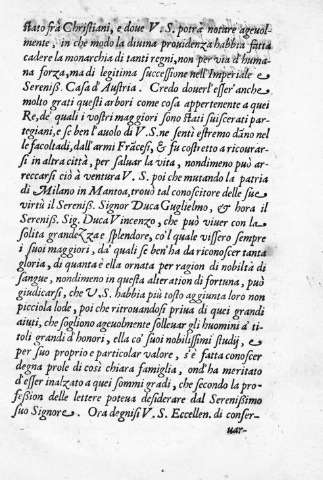 stato frà Christiani, e doue V. S. potrà notare ageuol-
mente, in che modo la diuina prouidenza habbia fatta
cadere la monarchia di tanti regni, non per via d'huma
na forza, ma di legitima successione nell'Imperiale e
Sereniss. Casa d'Austria. Credo douerl'esser'anche
molto grati questi arbori come cosa appertenente a quei
Re, de' quali i vostri maggiori sono stati suiscerati par-
tegiani, e se ben l'auolo di V. S. ne sentì estremo dãno nel
le facoltadi, dall'armi Frãcesi, & fu costretto a ricourar-
si in altra città, per saluar la vita, nondimeno può ar-
reccarsi ciò à ventura V. S. poi che mutando la patria
di Milano in Mantoa, trouò tal conoscitore delle sue
virtù il Sereniss. Signor Duca Guglielmo, & hora il
Sereniss. Sig. Duca Vincenzo, che può viuer con la
solita grandezza e splendore, co'l quale vissero sempre
i suoi maggiori, da' quali se ben'ha da riconoscer tanta
gloria, di quanta è ella ornata per ragion di nobiltà di
sangue, nondimeno in questa alteration di fortuna, può
giudicarsi, che V. S. habbia più tosto aggiunta loro non
picciola lode, poi che ritrouandosi priua di quei grandi
aiuti, che sogliono ageuolmente solleuar gli huomini a' ti-
toli grandi d'honori, ella co' suoi nobilissimi studij, e
per suo proprio e particolar valore, s'è fatta conoscer
degna prole di così chiara famiglia, ond'ha meritato
d'esser inalzato a quei sommi gradi, che secondo la pro-
fession delle lettere poteua desiderare dal Serenissimo
suo Signore. Ora degnisi V. S. Eccellen. di conser-
uar-